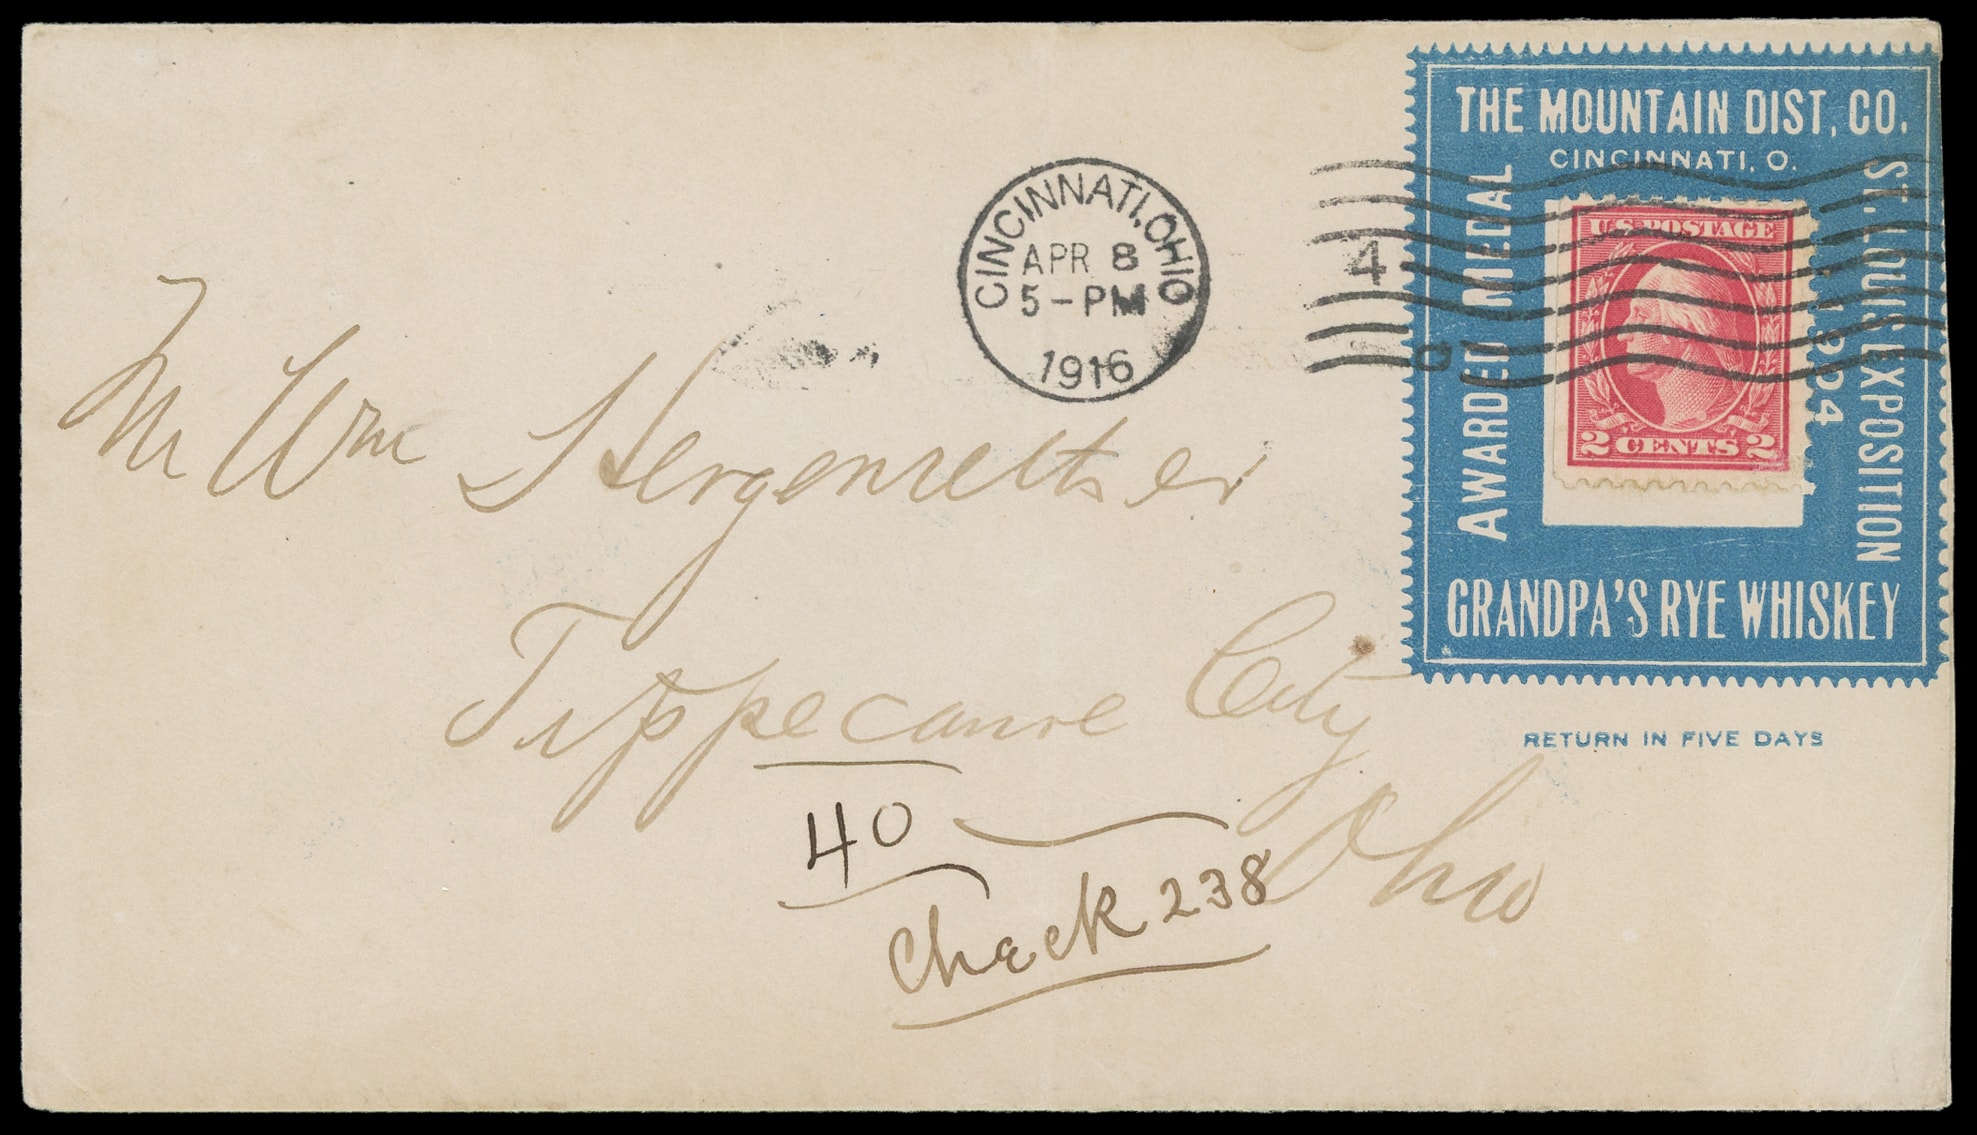 THE MOUNTAIN DIST. CO.
CINCINNATI, O.
AWARDED MEDAL
ST. LOUIS EXPOSITION
1904
U.S. POSTAGE
2 CENTS 2
GRANDPA'S RYE WHISKEY
RETURN IN FIVE DAYS
CINCINNATI, OHIO
APR 8
5-PM
1916
4
Mr Wm Hergenrether
Tippecanoe City
Ohio
40
Check 238